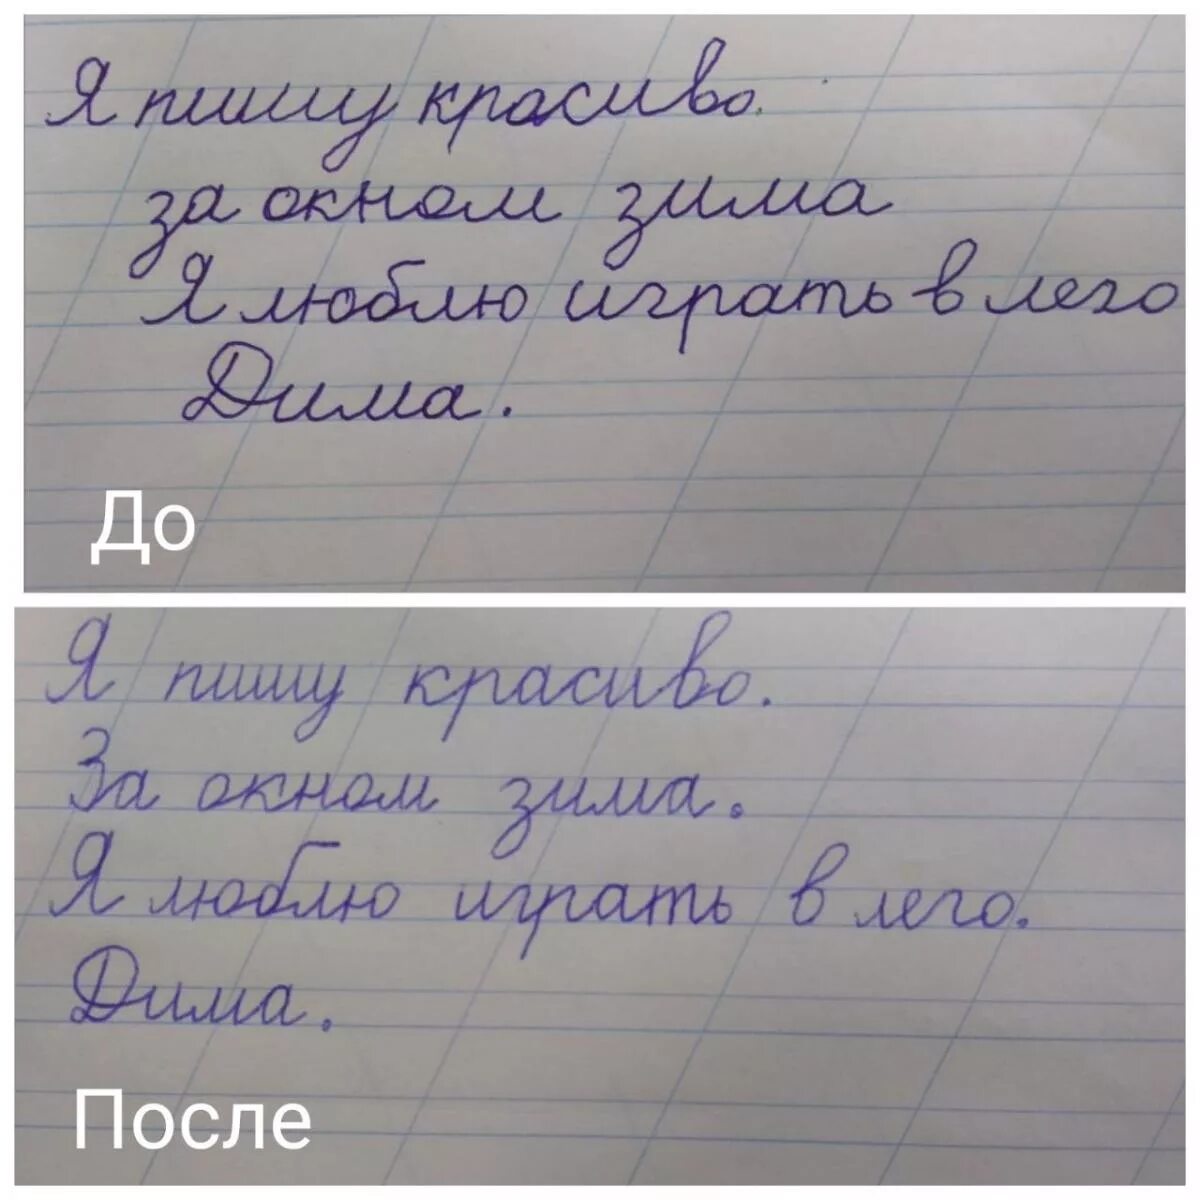 Я пишу красиво.
за окном зима
Я люблю играть в лего
Дима.
До
Я пишу красиво.
За окном зима.
Я люблю играть в лего.
Дима.
После